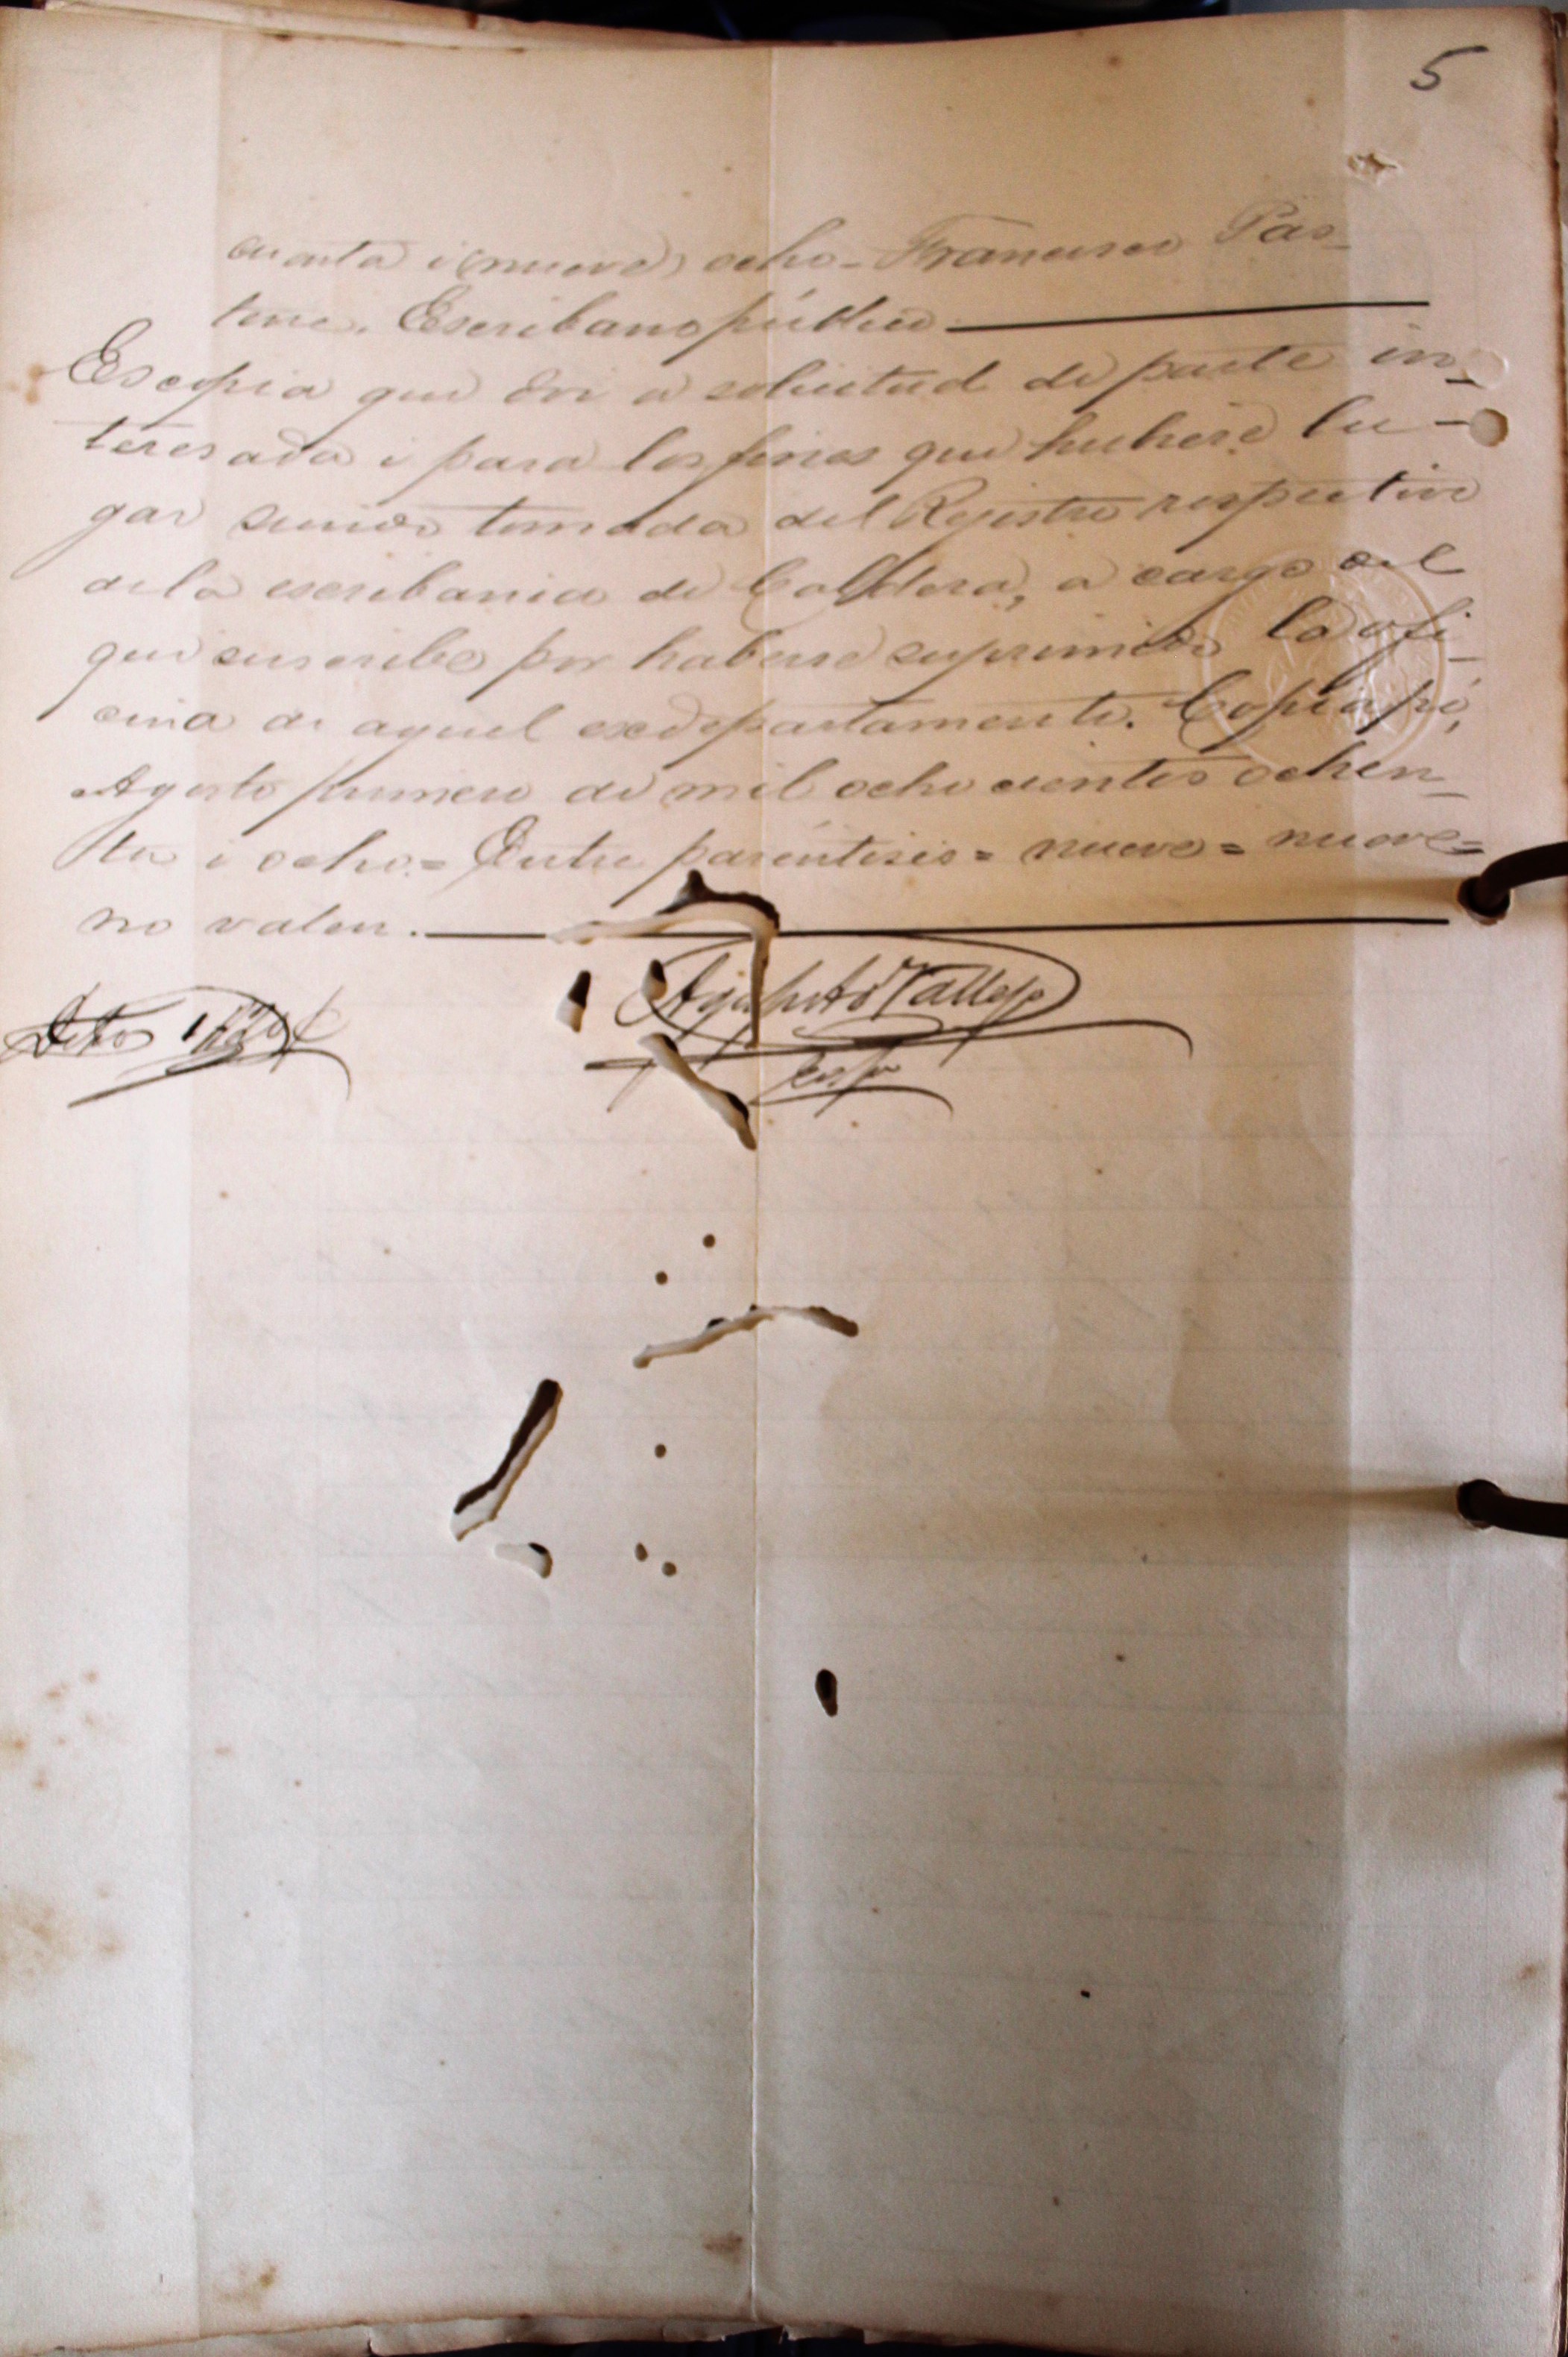 5
cuenta i (nueve) ocho - Francisco Pas-
tene. Escribano público.
Es copia que doi a solicitud de parte in-
teresada i para los fines que hubiere lu-
gar siendo tomada del Registro respectivo
de la escribania de Caldera, a cargo del
que suscribe por haberse suprimido la ofi-
cina de aquel exdepartamento. Copiapó,
Agosto primero de mil ochocientos ochen-
ta i ocho. = Entre paréntesis = nueve = nueve =
no valen.
Agapito Vallejo